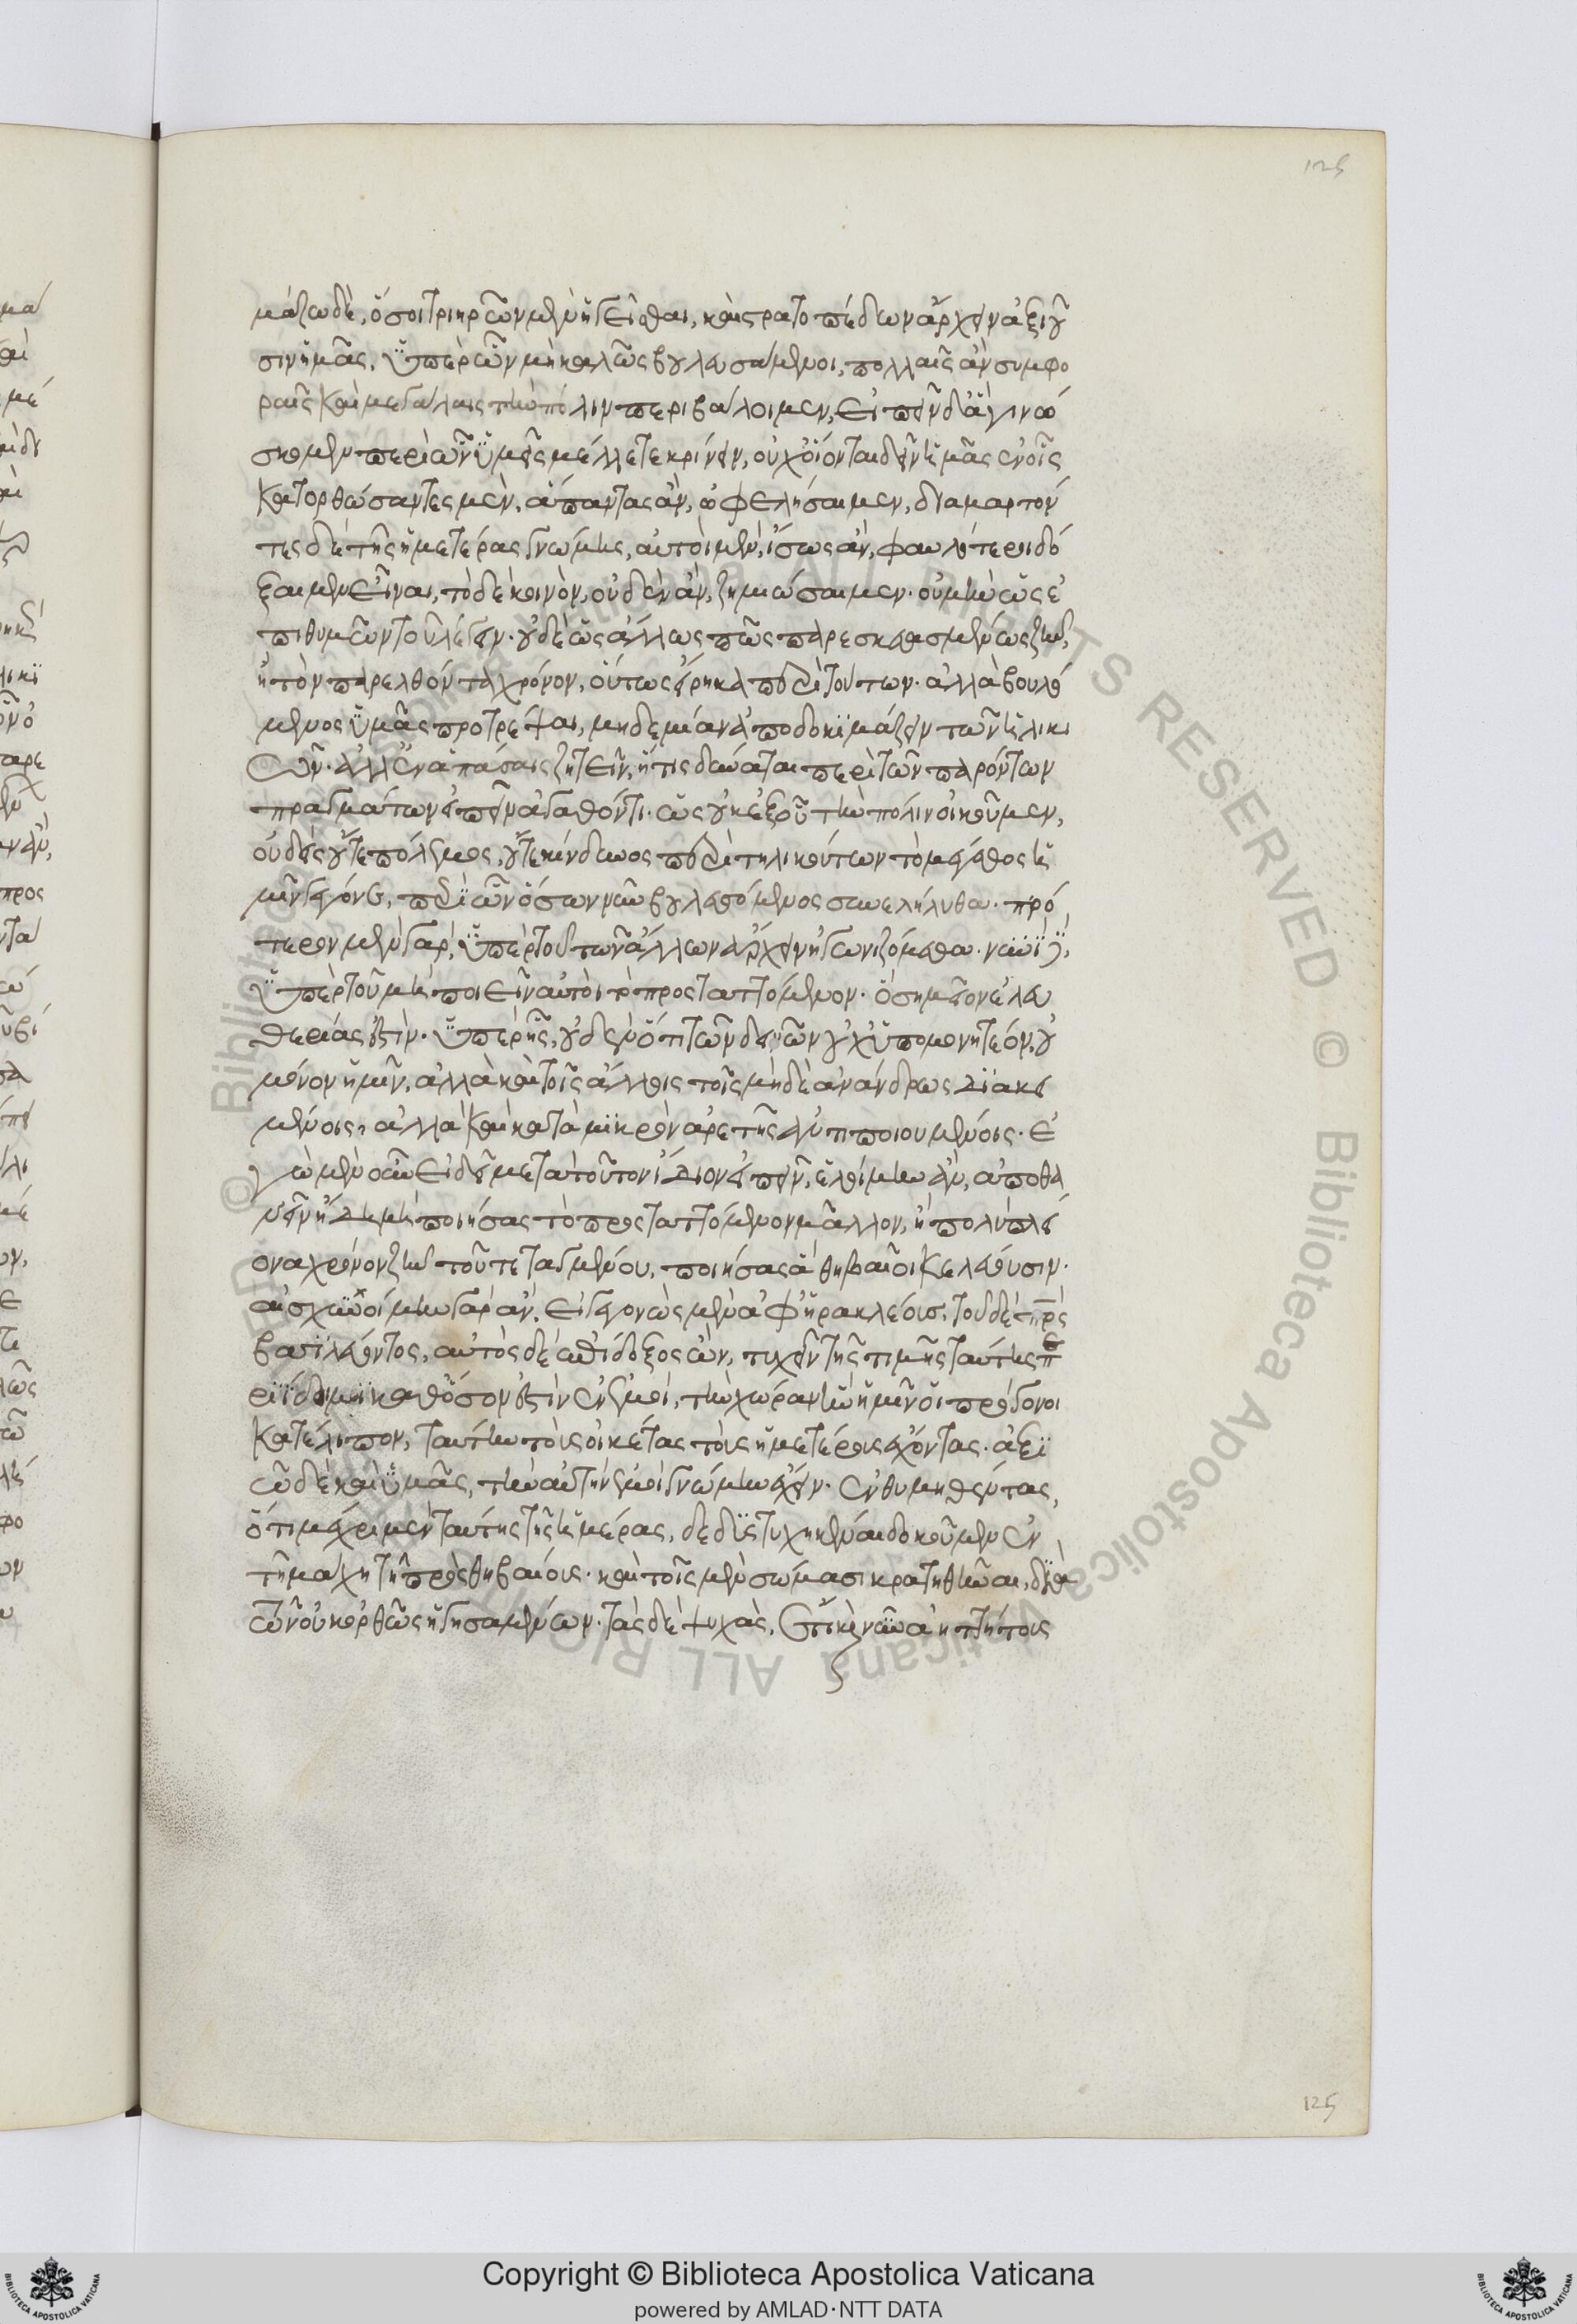 125
μάζω δὲ, ὅσοι τριηρῶν μὲν ἡγεῖσθαι, καὶ στρατοπέδων ἄρχειν ἀξιοῦ
σιν ἡμᾶς, ὑπὲρ ὧν μὴ καλῶς βουλευσάμενοι, πολλαῖς ἂν συμφο
ραῖς καὶ μεγάλαις τὴν πόλιν περιβάλοιμεν, εἰπεῖν δ' ἃ γινώ
σκομεν περὶ ὧν ὑμεῖς μέλλετε κρίνειν, οὐχ οἴονται δεῖν ἡμᾶς ἐν οἷς
κατορθώσαντες μὲν, ἅπαντας ἂν, ὠφελήσαιμεν, διαμαρτόν
τες δὲ τῆς ὑμετέρας γνώμης, αὐτοὶ μὲν, ἴσως ἂν, φαυλότεροι δό
ξαιμεν εἶναι, τὸ δὲ κοινὸν, οὐδὲν ἂν, ζημιώσαιμεν. οὐ μὴν ὡς ἐ
πιθυμῶν τοῦ λέγειν. οὐδὲ ὡς ἄλλως πως παρεσκευασμένως ζῆν,
ἢ τὸν παρελθόντα χρόνον, οὕτως εἴρηκα περὶ τούτων. ἀλλὰ βουλό
μενος ὑμᾶς προτρέψαι, μηδεμίαν ἀποδοκιμάζειν τῶν ἡλικι
ῶν. ἀλλ' ἐν ἁπάσαις ζητεῖν, ἥτις δύναται περὶ τῶν παρόντων
πραγμάτων εἰπεῖν ἀγαθόν τι. ὡς οὐκ ἐξ οὗ τὴν πόλιν οἰκοῦμεν,
οὐδεὶς οὔτε πόλεμος, οὔτε κίνδυνος περὶ τηλικούτων τὸ μέγεθος ἡ
μῖν γέγονε, περὶ ὧν ὅσων νῦν βουλευόμενος συνεληλύθα. πρό
τερον μὲν γὰρ, ὑπὲρ τοῦ τῶν ἄλλων ἄρχειν ἠγωνιζόμεθα. νυνὶ δὲ,
ὑπὲρ τοῦ μὴ ποιεῖν αὐτοὶ τὸ προσταττόμενον. ὃ σημεῖον ἐλευ
θερίας ἐστίν. ὑπὲρ ἧς, οὐδὲν ὅ τι τῶν δεινῶν οὐχ ὑπομονητέον, οὐ
μόνον ἡμῖν, ἀλλὰ καὶ τοῖς ἄλλοις τοῖς μηδὲ ἀνάνδρως διακει
μένοις ἀλλὰ καὶ κατὰ μικρὸν ἀρετῆς ἀντιποιουμένοις. ἐ
γὼ μὲν οὖν εἰ δεῖ με τὰ τοῦτον ἴδιον εἰπεῖν, ἑλοίμην ἂν, ἀποθα
νεῖν ἤδη μὴ ποιήσας τὸ προσταττόμενον μᾶλλον, ἢ πολὺ πλεί
ονα χρόνον ζῆν τοῦ τεταγμένου, ποιήσας ἃ θηβαῖοι κελεύουσιν.
αἰσχυνοίμην γὰρ ἂν, εἰ γεγονὼς μὲν ἀφ' ἡρακλέους, τοῦ δὲ πατρὸς
βασιλεύοντος, αὐτὸς δὲ ἐπίδοξος ὢν, τυχεῖν τῆς τιμῆς ταύτης πε
ριίδοιμι καθ' ὅσον ἐστὶν ἐν ἐμοὶ, τὴν χώραν ἣν ἡμῖν οἱ πρόγονοι
κατέλιπον, ταύτην τοὺς οἰκέτας τοὺς ἡμετέρους ἔχοντας. ἀξι
ῶ δὲ καὶ ὑμᾶς, τὴν αὐτὴν ἐμοὶ γνώμην ἔχειν. ἐνθυμηθέντας,
ὅτι μέχρι μὲν ταύτης τῆς ἡμέρας, δεδυστυχηκέναι δοκοῦμεν ἐν
τῇ μάχῃ τῇ πρὸς θηβαίους. καὶ τοῖς μὲν σώμασι κρατηθῆναι, διὰ
τῶν οὐκ ὀρθῶς ἡγησαμένων. τὰς δὲ ψυχὰς, ἔτι καὶ νῦν ἀηττήτους
125
Copyright © Biblioteca Apostolica Vaticana
powered by AMLAD·NTT DATA